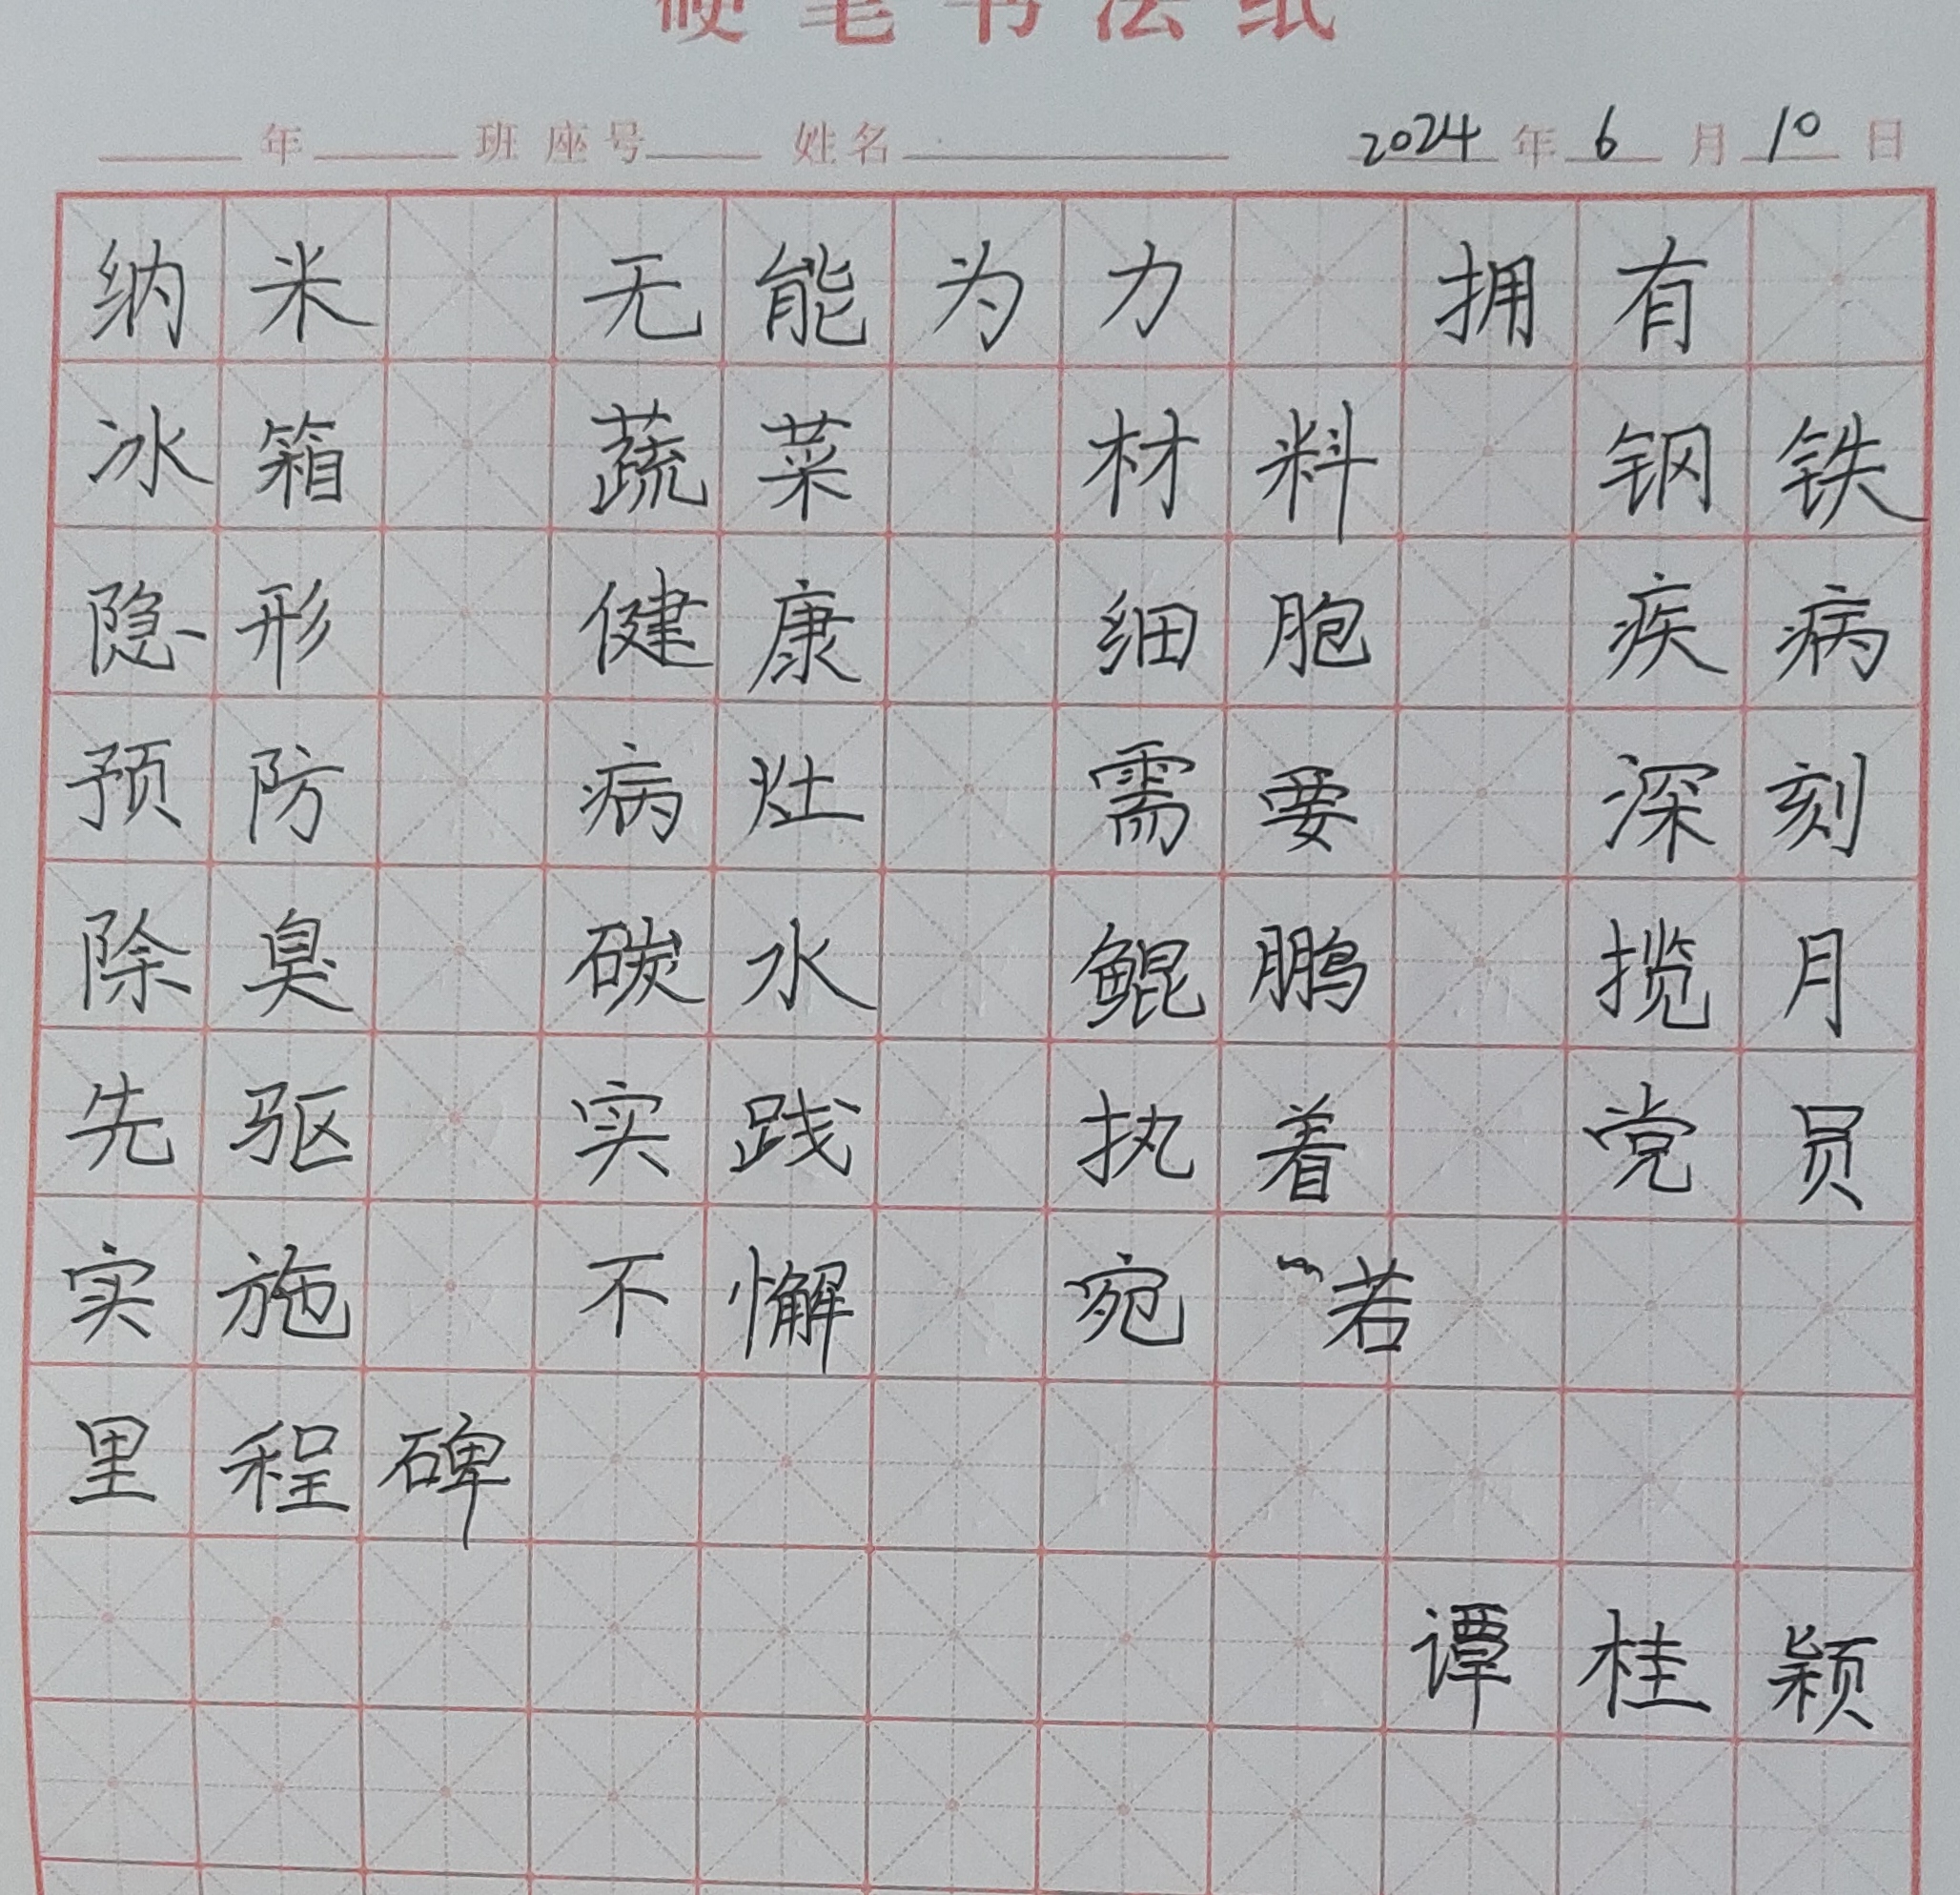 硬笔书法纸
年 班 座号 姓名 2024年6月10日
纳米 无能为力 拥有
冰箱 蔬菜 材料 钢铁
隐形 健康 细胞 疾病
预防 病灶 需要 深刻
除臭 碳水 鲲鹏 揽月
先驱 实践 执着 党员
实施 不懈 宛若
里程碑
谭桂颖